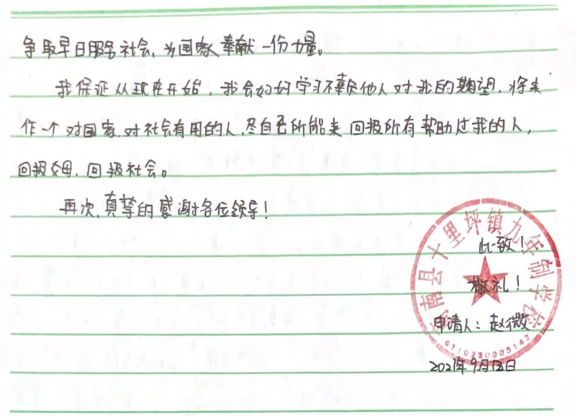 争取早日服务社会、为国家奉献一份力量。
我保证从现在开始，我会好好学习不辜负他人对我的期望，将来
作一个对国家、对社会有用的人，尽自己所能来回报所有帮助过我的人，
回报父母，回报社会。
再次，真挚的感谢各位领导！
此致！
敬礼！
申请人：赵微
2021年9月13日
南县十里坪镇九年制学校